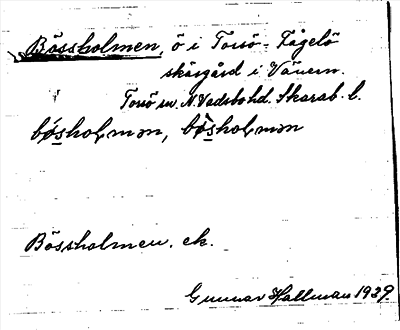 Bössholmen, ö i Torsö-Fågelö
skärgård i Vänern.
Torsö sn. N. Vadsbo hd. Skarab. l.
bǿsholmən, bø̀sholmən
Bössholmen. ek.
Gunnar Hallman 1939.